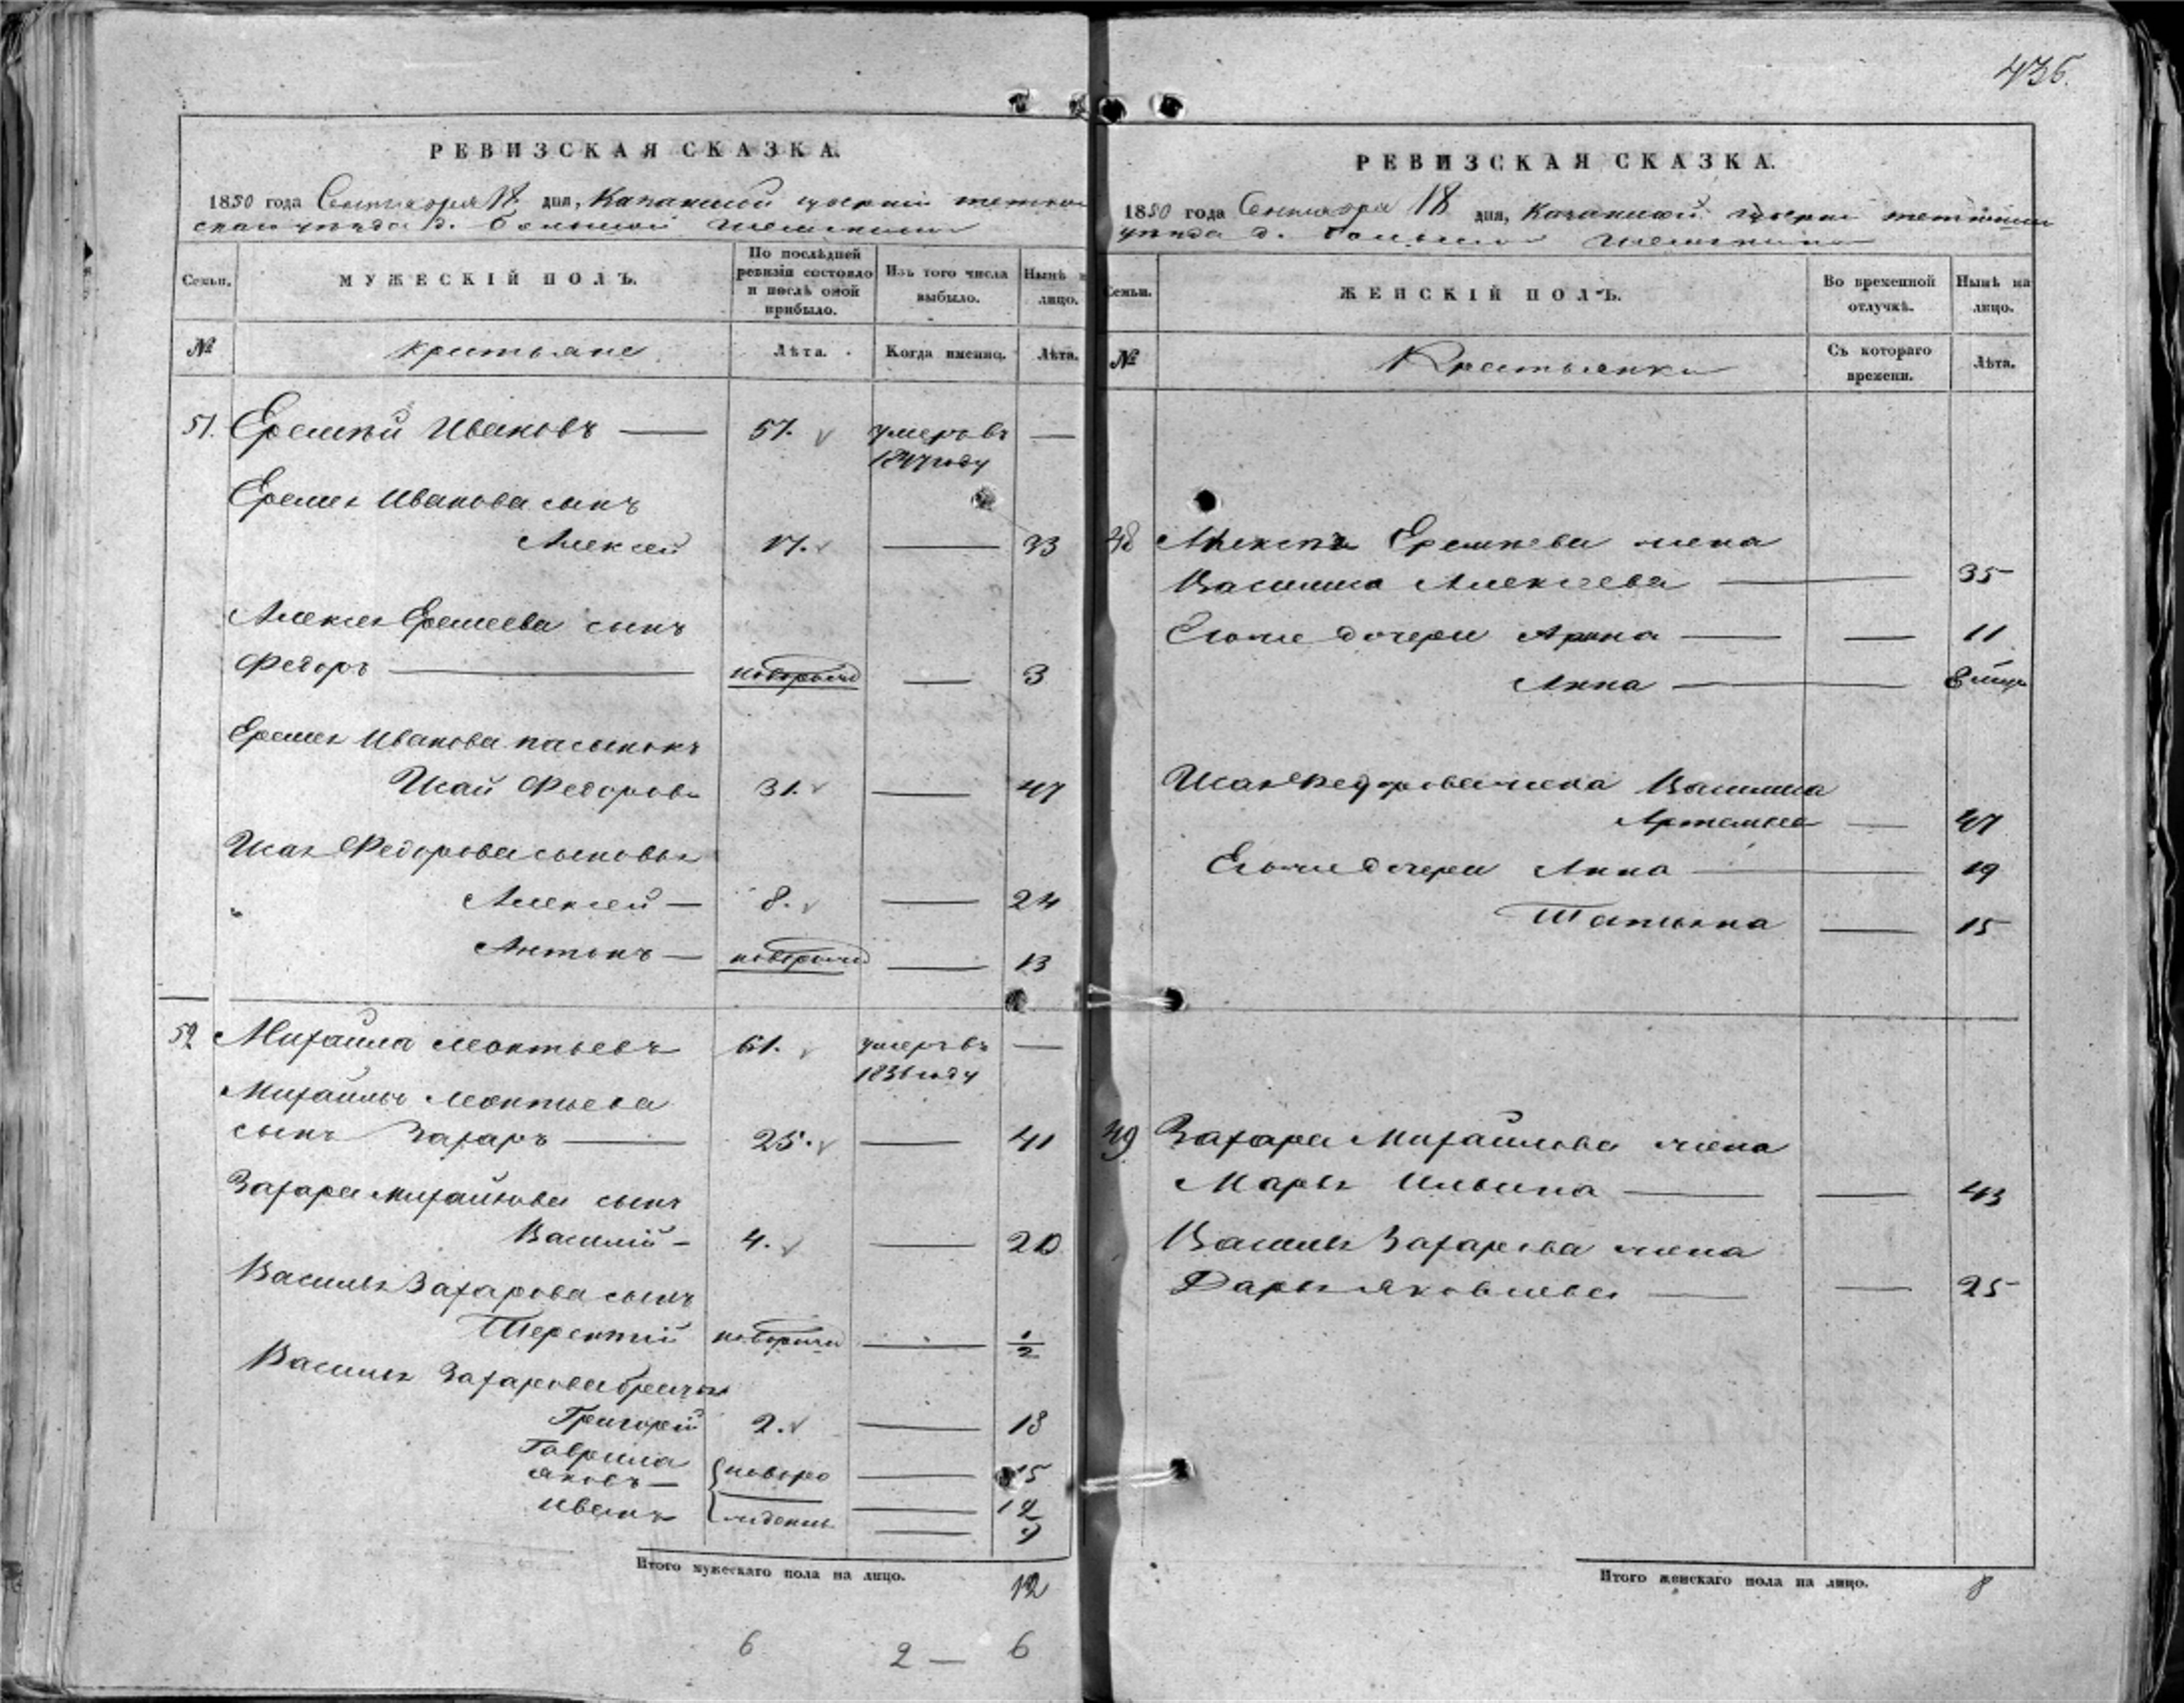 436.
РЕВИЗСКАЯ СКАЗКА.
1850 года Сентября 18 дня, Казанской губерніи тетюш
скаго уѣзда д. Большой
Семьи.
МУЖЕСКІЙ ПОЛЪ.
По послѣдней ревизіи состояло и послѣ оной прибыло.
Изъ того числа выбыло.
Нынѣ на лицо.
№
крестьяне
Лѣта.
Когда именно.
Лѣта.
51. Еремѣй Ивановъ — 57. умеръ въ —
1847 году
Еремея Иванова сынъ
Алексей 17. — 33
Алексея Еремеева сынъ
Федоръ — новорожд — 3
Еремея Иванова пасынокъ
Исай Федоровъ 31. — 47
Исая Федорова сыновья
Алексей — 8. — 24
Антонъ — новорожд — 13
52 Михайла Леонтьевъ 61. умеръ въ —
1836 году
Михайлы Леонтьева
сынъ Захаръ — 25. — 41
Захара Михайлова сынъ
Василій — 4. — 20
Василья Захарова сынъ
Терентій новорожд — 1/2
Василья Захарова братья
Григорей 2. — 18
Гаврила
Яковъ — новоро — 15
Иванъ жденны — 12
— 9
Итого мужескаго пола на лицо.
12
6 2 — 6
РЕВИЗСКАЯ СКАЗКА.
1850 года Сентября 18 дня, Казанской губерніи тетюшскаго
уѣзда д. Большой
Семьи.
ЖЕНСКІЙ ПОЛЪ.
Во временной отлучкѣ.
Нынѣ на лицо.
№
Крестьянки
Съ котораго времени.
Лѣта.
48 Алексѣя Еремѣева жена
Василиса Алексеева — 35
Егоже дочери Арина — — 11
Анна — 8 мѣся
Исая Федорова жена Василиса
Артемьева — 47
Егоже дочери Анна — 19
Татьяна — 15
49 Захара Михайлова жена
Марья Ильина — — 43
Василья Захарова жена
Дарья Яковлева — — 25
Итого женскаго пола на лицо. 8